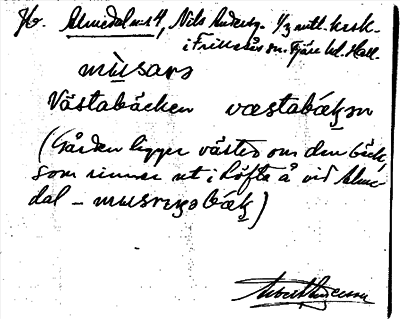 Hb. Almedal nr 4, Nils Anderss. 1/3 mtl. krsk.
i Frillesås sn. Fjäre hd. Hall.
mùsaro
Västabäcken væstabákən
(Gården ligger väster om den bäck,
som rinner ut i Löftaå vid Alme-
dal – musrenobák)